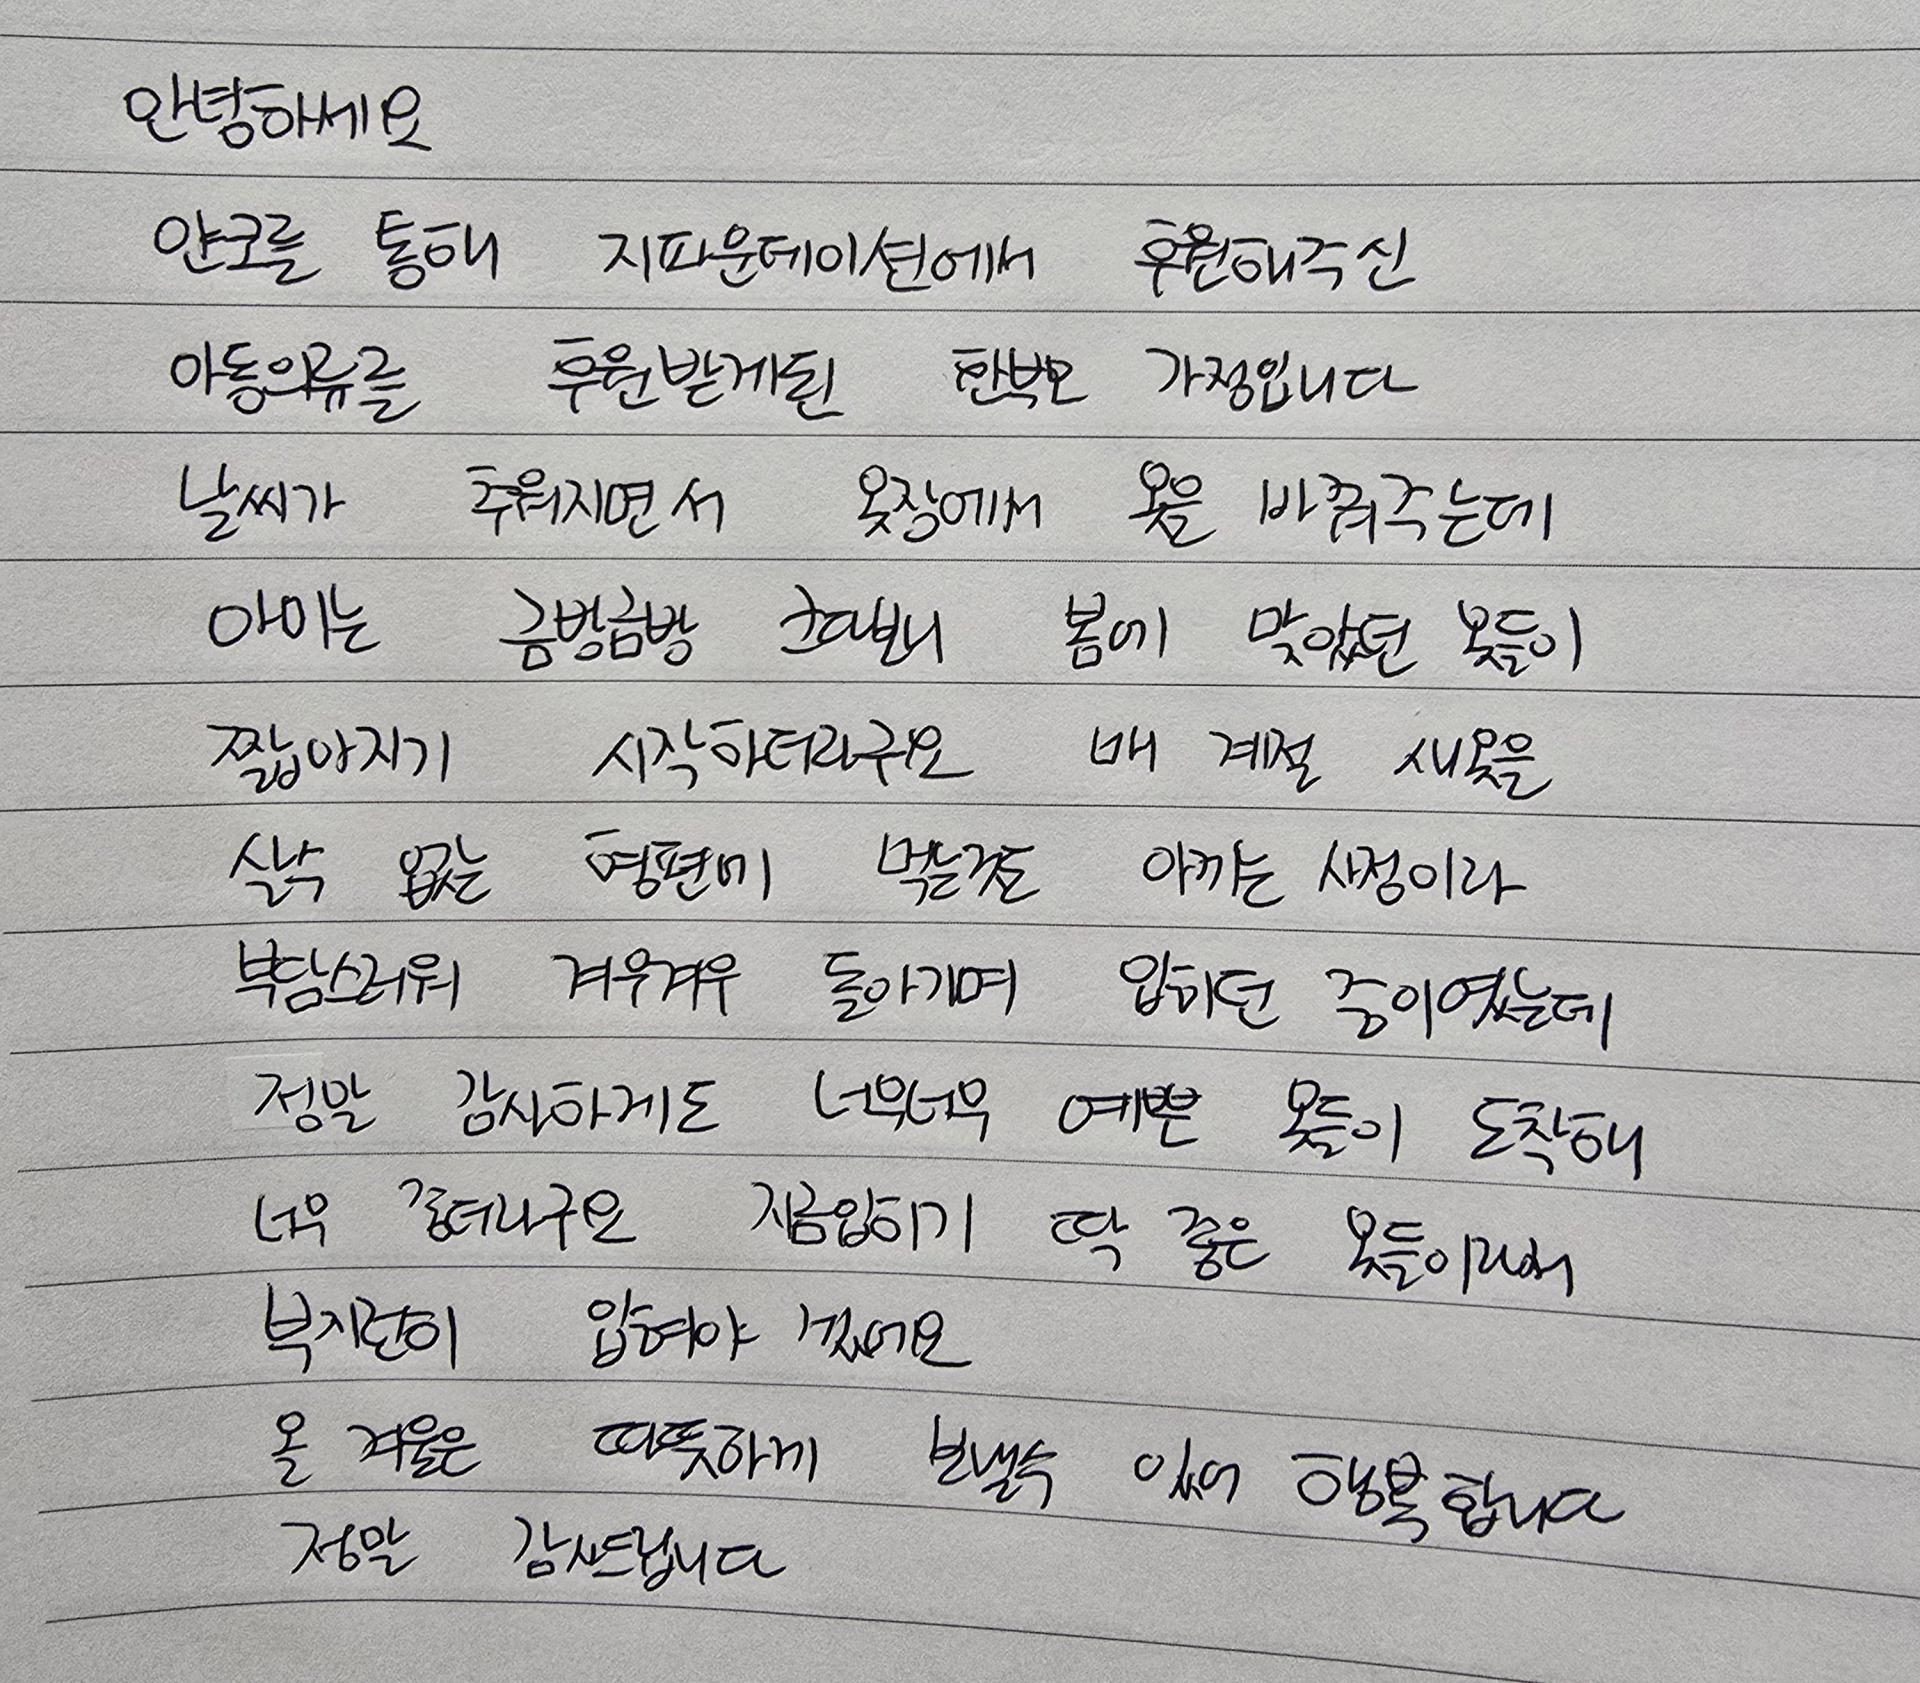 안녕하세요
얀코를 통해 지파운데이션에서 후원해주신
아동의류를 후원받게된 한부모 가정입니다
날씨가 추워지면서 옷장에서 옷을 바꿔주는데
아이는 금방금방 크다보니 봄에 맞았던 옷들이
짧아지기 시작하더라구요 매 계절 새옷을
살수 없는 형편에 먹는것도 아끼는 사정이라
부담스러워 겨우겨우 돌아가며 입히던 중이였는데
정말 감사하게도 너무너무 예쁜 옷들이 도착해
너무 좋더라구요 지금입히기 딱 좋은 옷들이라서
부지런히 입혀야 겠어요
올 겨울은 따뜻하게 보낼수 있어 행복합니다
정말 감사드립니다